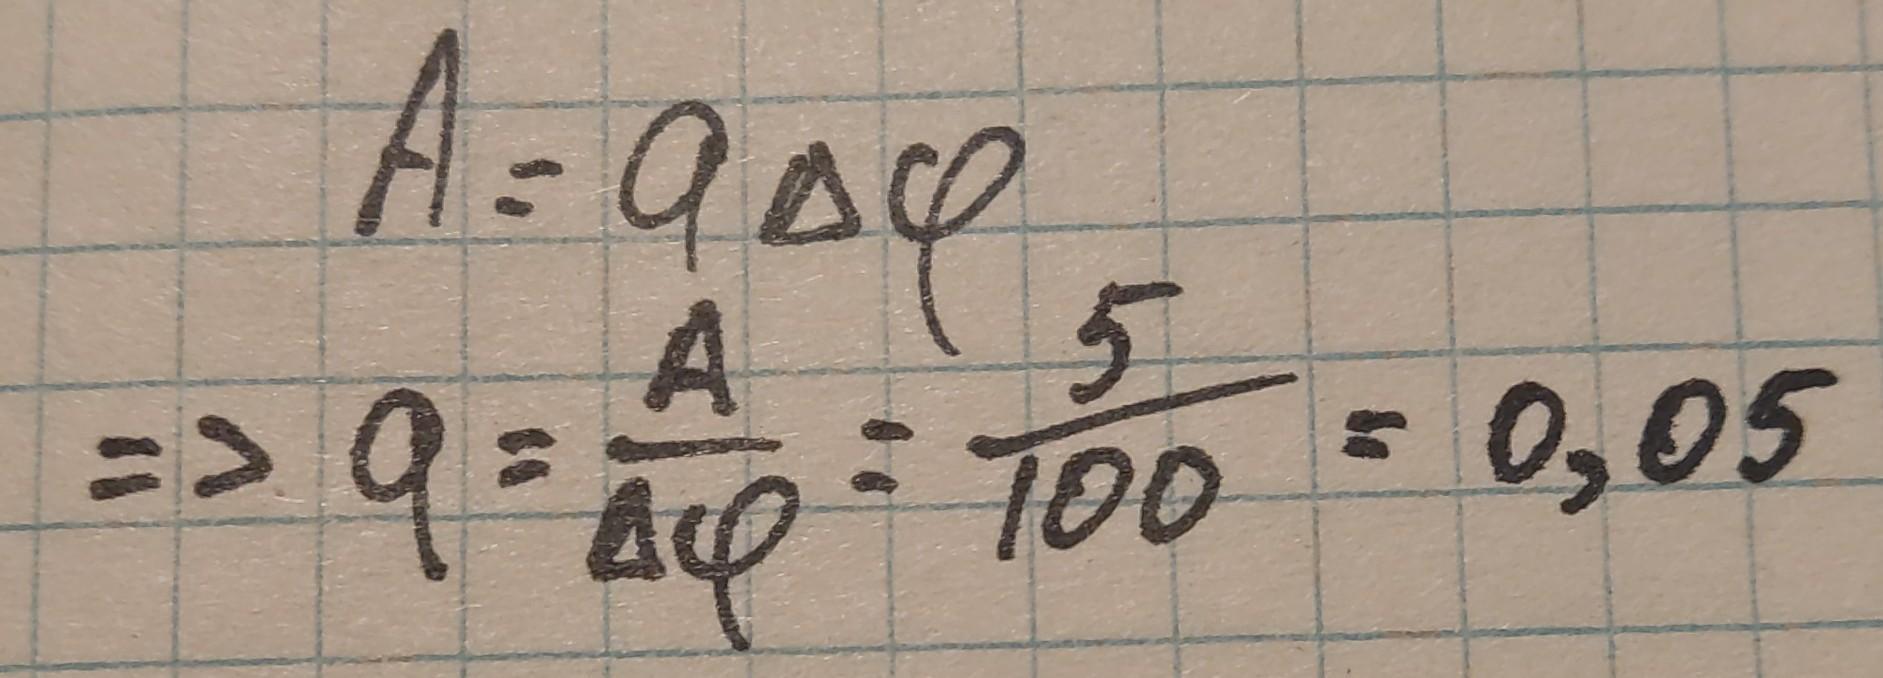 A = qΔφ
=> q = A/Δφ = 5/100 = 0,05